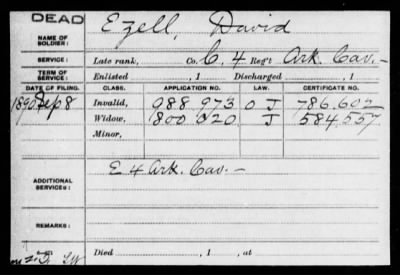 DEAD
NAME OF SOLDIER: Ezell, David
SERVICE: Late rank, Co. C, 4 Reg't Ark. Cav.-
TERM OF SERVICE: Enlisted , 1 Discharged , 1
DATE OF FILING. CLASS. APPLICATION NO. LAW. CERTIFICATE NO.
1890 Sep 8 Invalid, 988 973 O J 786.602
Widow, 800 020 J 584,557
Minor,
ADDITIONAL SERVICES: E 4 Ark. Cav.-
REMARKS:
Died , 1 , at